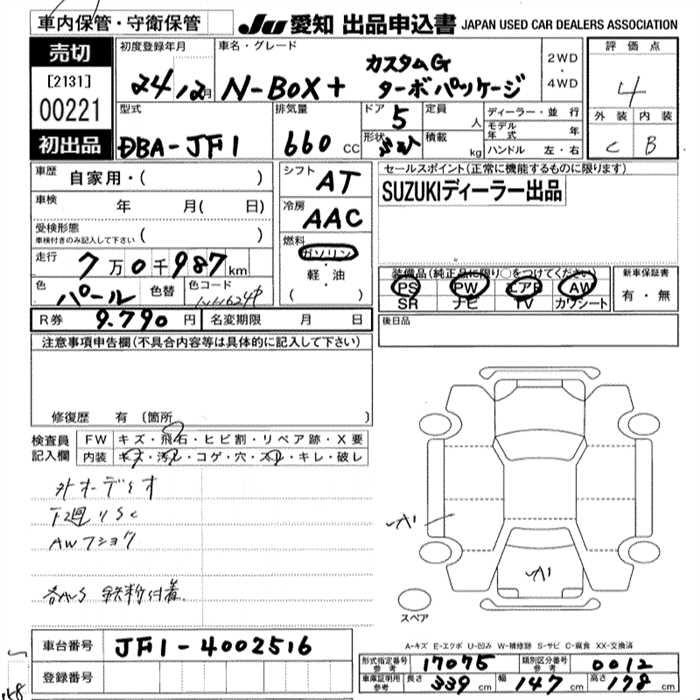 車内保管・守衛保管
JU 愛知 出品申込書 JAPAN USED CAR DEALERS ASSOCIATION
売切
[2131]
00221
初出品
初度登録年月
24/2月
車名・グレード
N-BOX+ カスタムG ターボパッケージ
2WD
・
4WD
評価点
4
外装 内装
C B
型式
DBA-JF1
排気量
660 CC
ドア 5
形状
定員 人
積載 kg
ディーラー・並行
モデル年式 年
ハンドル 左・右
車歴 自家用・( )
車検 年 月( 日)
受検形態
車検付きのみ記入して下さい ( )
走行 7万0千987km
色 パール 色替 色コード
R券 9.790円 名変期限 月 日
シフト AT
冷房 AAC
燃料
ガソリン
・
軽・油
( )
セールスポイント(正常に機能するものに限ります)
SUZUKIディーラー出品
装備品(純正品に限り○をつけてください)
PS PW エアB AW
SR ナビ TV カワシート
新車保証書
有・無
後日品
注意事項申告欄(不具合内容等は具体的に記入して下さい)
修復歴 有 (箇所 )
検査員記入欄
FW キズ・飛石・ヒビ割・リペア跡・X要
内装 キズ・汚レ・コゲ・穴・スレ・キレ・破レ
外オーディオ
下廻りSC
AWフショク
鉄粉付着
スペア
A-キズ E-エクボ U-凹み W-補修跡 S-サビ C-腐食 XX-交換済
車台番号 JF1-4002516
登録番号
形式指定番号 参考 17075 類別区分番号 参考 0012
車庫証明用 参考 長さ 339cm 幅 147cm 高さ 178cm